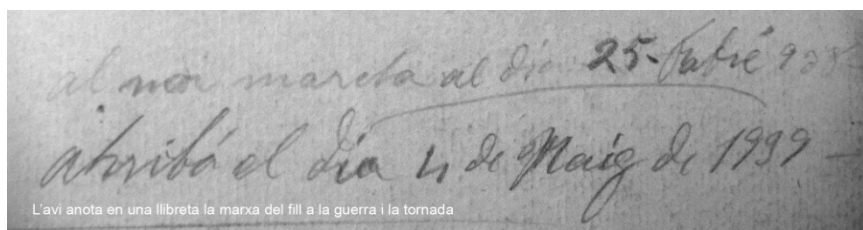 al noi marcha al dia 25- Fabré 938-
atrribá el dia 4 de Maig de 1939 -
L'avi anota en una llibreta la marxa del fill a la guerra i la tornada